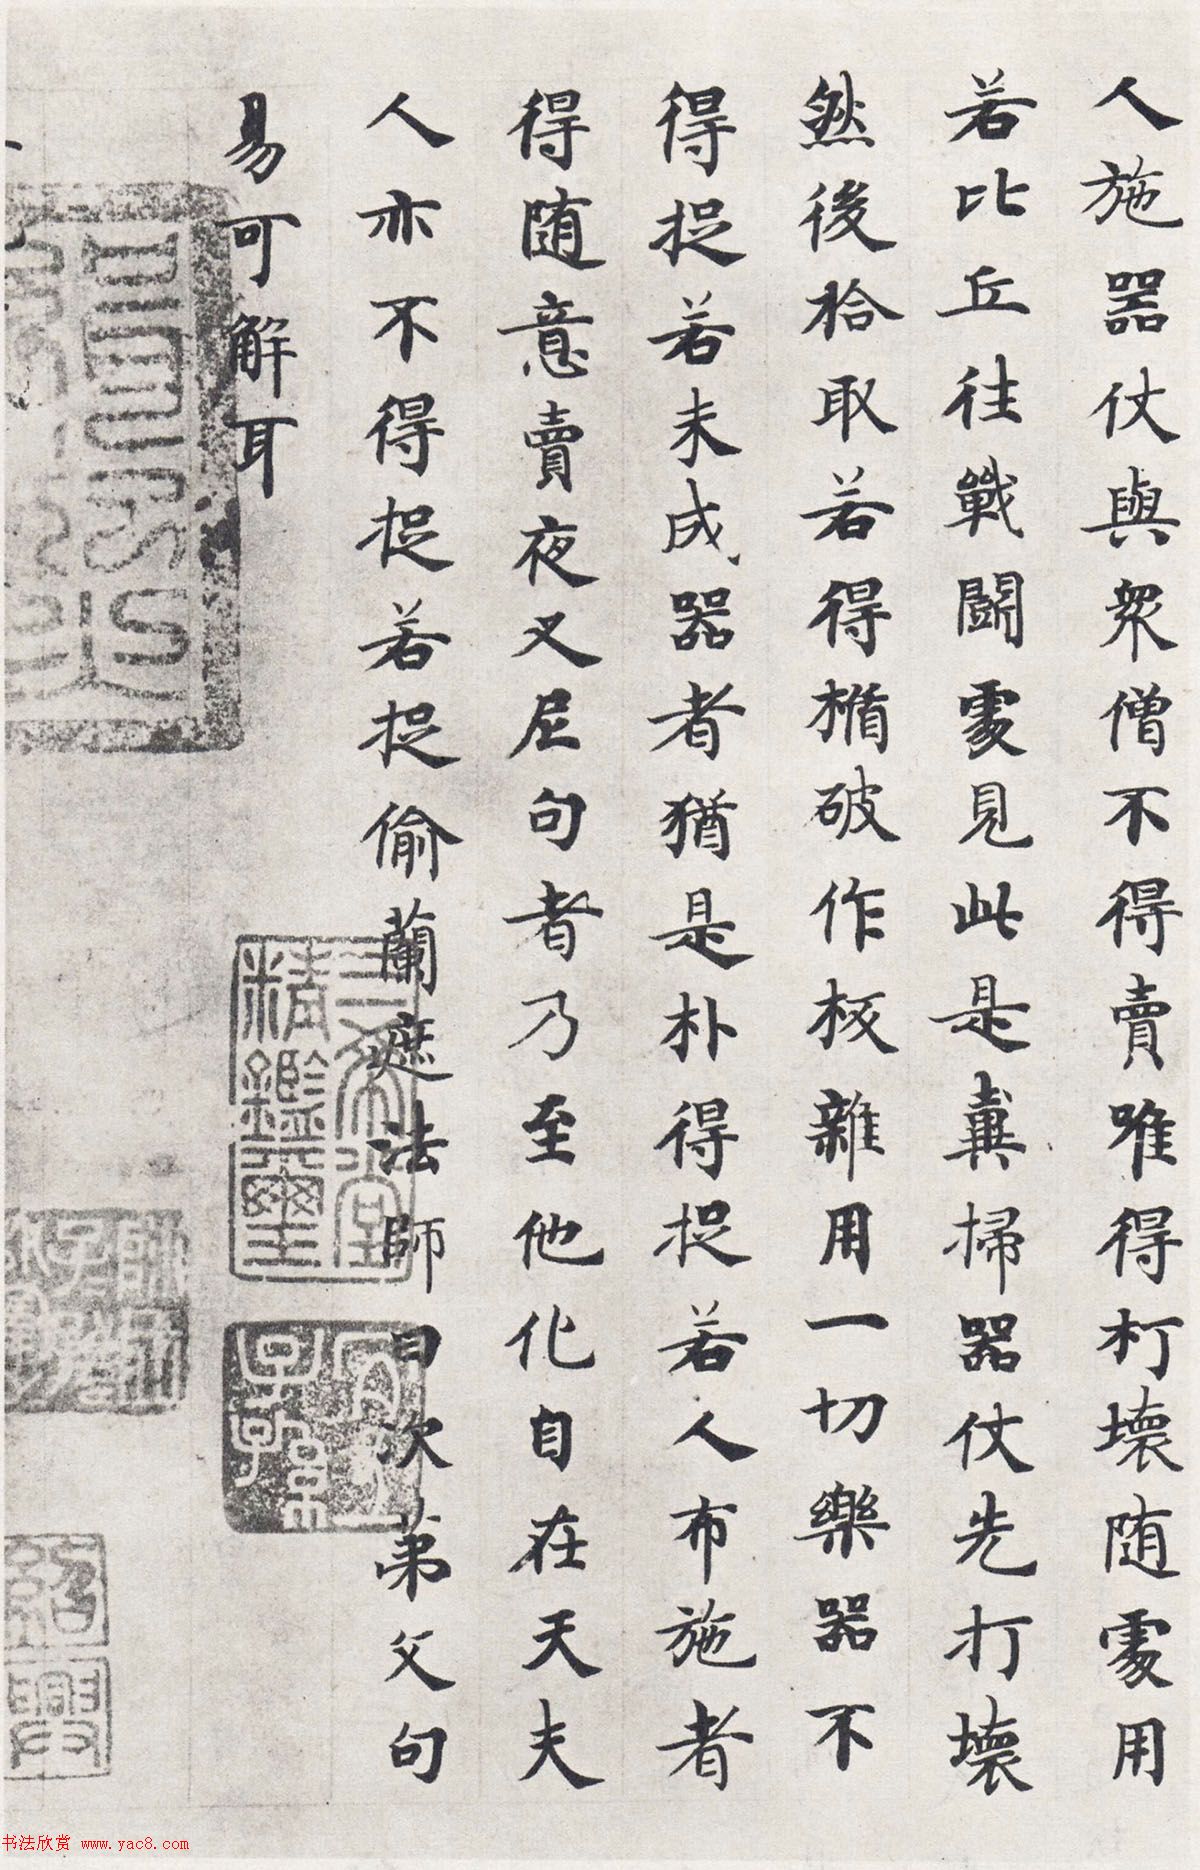 人施噐仗與衆僧不得賣唯得打壞随處用
若比丘往戰鬪處見此是糞掃噐仗先打壞
然後拾取若得楯破作板雜用一切樂噐不
得捉若未成噐者猶是朴得捉若人布施者
得随意賣夜叉尼句者乃至他化自在天夫
人亦不得捉若捉偷蘭遮法師曰次苐文句
易可解耳
三希堂
精鑑璽
宜子孫
紹
興
书法欣赏 www.yac8.com